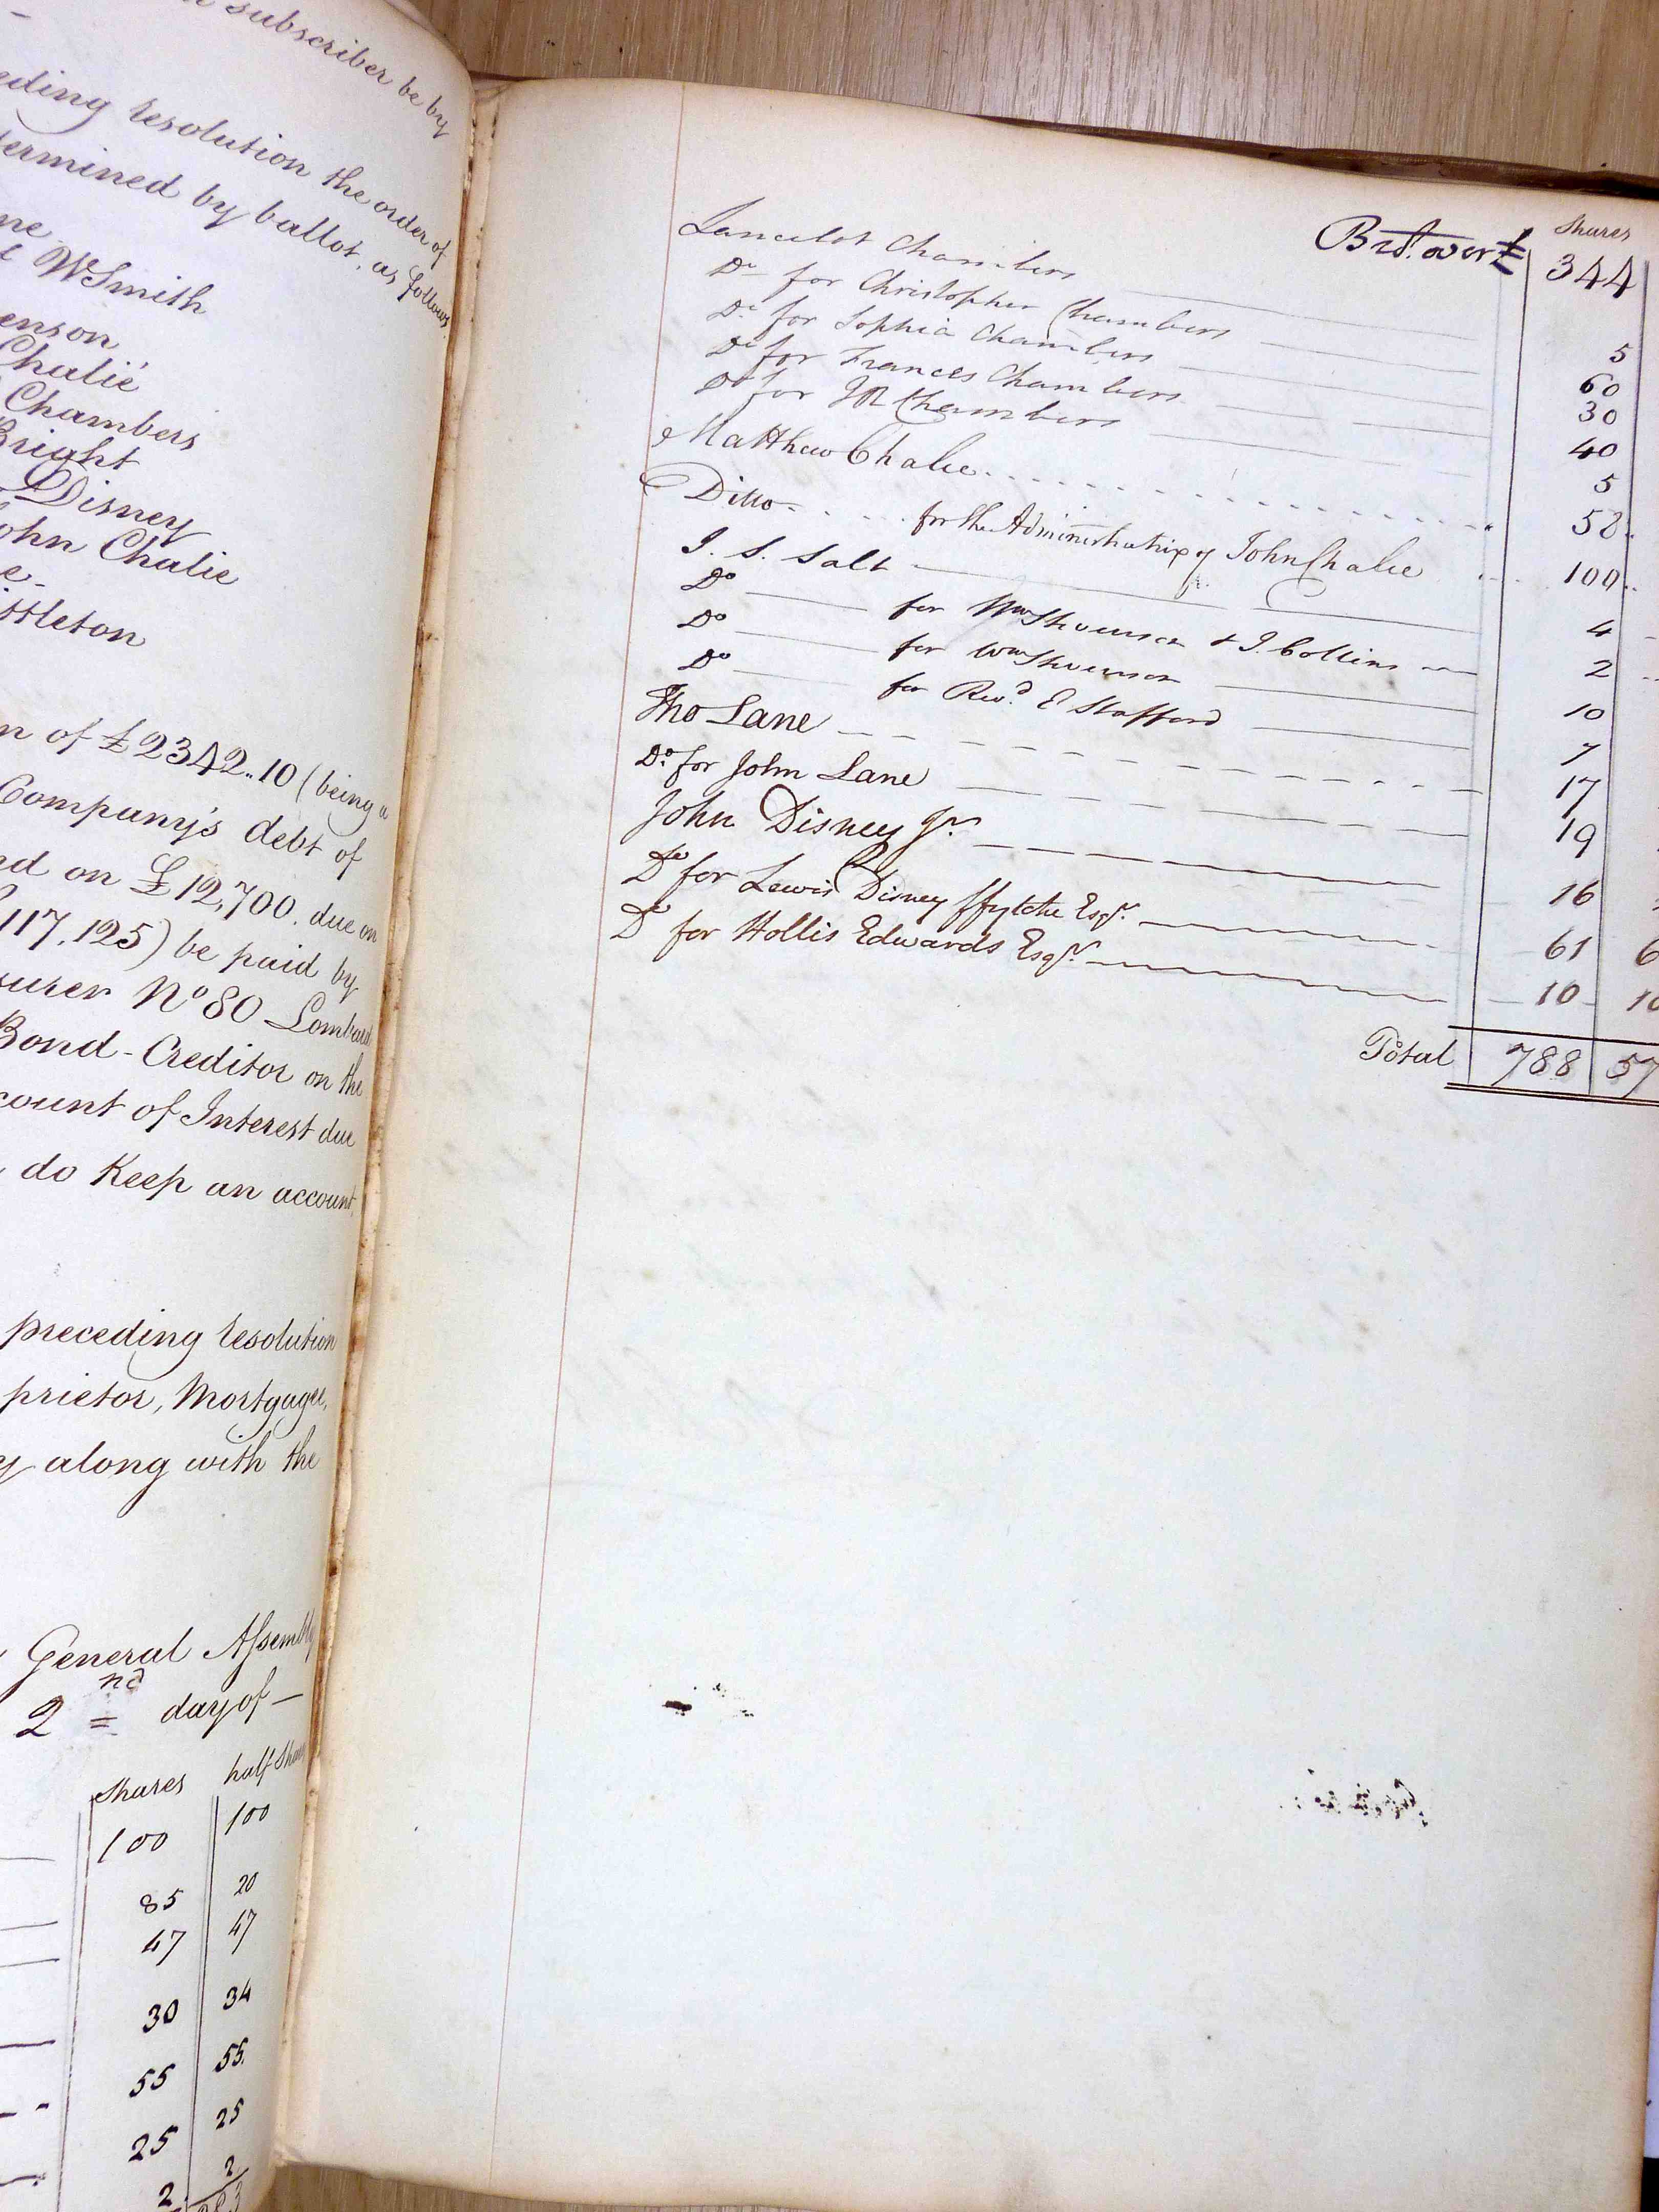 subscriber be by
eding resolution the order of
termined by ballot, as follows
W Smith
enson
Chalié
Chambers
Bright
Disney
ohn Chalie
e
ittleton
n of £2342..10 (being a
Company's debt of
d on £12,700. due on
117,125) be paid by
surer No 80 Lombard
Bond-Creditor on the
count of Interest due
do Keep an account
preceding resolution
prietor, Mortgagee,
y along with the
General Assembly
2nd day of —
Shares half Shares
100 100
85 20
47 47
30 34
55 55.
25 25
2 2
Shares
Brot. over £ 344
Lancelot Chambers 5
Do for Christopher Chambers 60
Do for Sophia Chambers 30
Do for Frances Chambers 40
Do for JR Chambers 5
Matthew Chalie 58
Ditto for the Administratrix of John Chalie 100
J. S. Salt 4
Do for Wm Stevenson & J. Collins 2
Do for Wm Stevenson 10
Do for Revd. E Stafford 7
Tho Lane 17
Do. for John Lane 19
John Disney Jr. 16
Do for Lewis Disney ffytche Esqr. 61 6
Do for Hollis Edwards Esqr. 10 10
Total 788 57